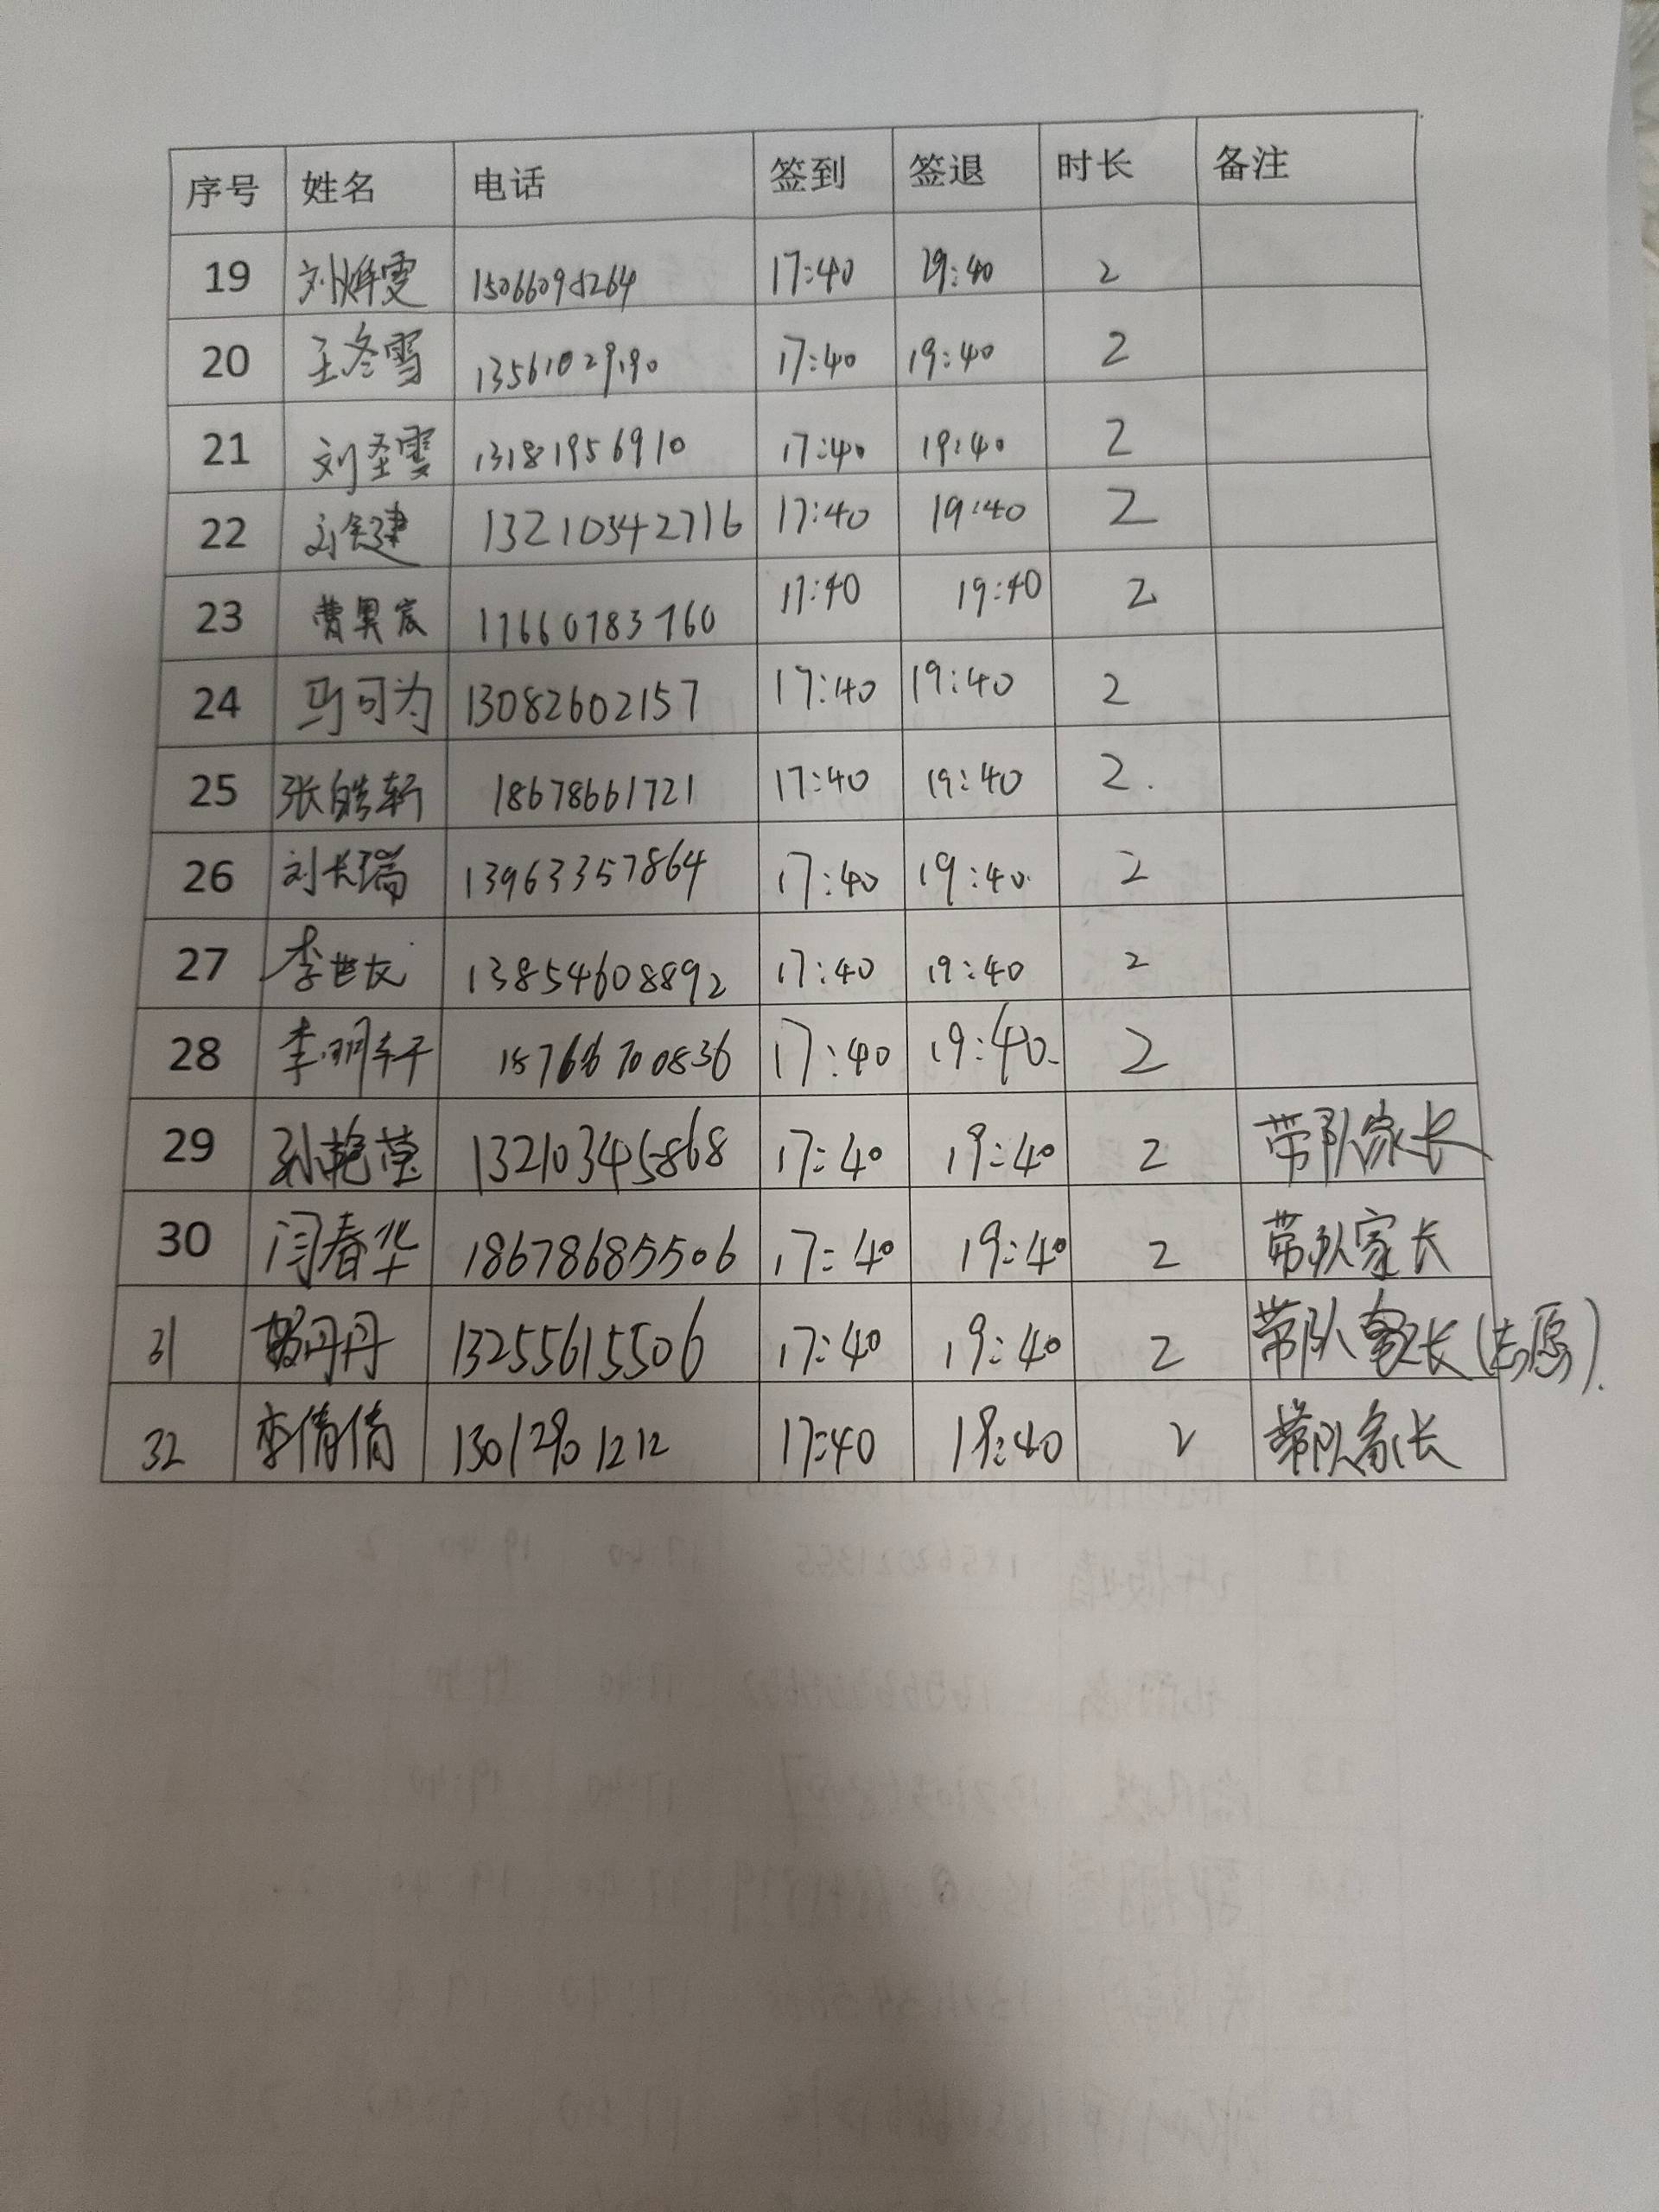 序号 姓名 电话 签到 签退 时长 备注
19 刘烨雯 17:40 19:40 2
20 王冬雪 17:40 19:40 2
21 刘圣雯 13181956910 17:40 19:40 2
22 13210342716 17:40 19:40 2
23 曹奥宸 17660783760 17:40 19:40 2
24 马可为 13082602157 17:40 19:40 2
25 张皓轩 18678661721 17:40 19:40 2.
26 刘长瑞 13963357864 17:40 19:40 2
27 李世友 13854608892 17:40 19:40 2
28 李明轩 17:40 19:40 2
29 孙艳莹 13210345868 17:40 19:40 2 带队家长
30 闫春华 18678685506 17:40 19:40 2 带队家长
31 丹丹 13255615506 17:40 19:40 2 带队家长(志愿).
32 李倩倩 13012901212 17:40 19:40 2 带队家长